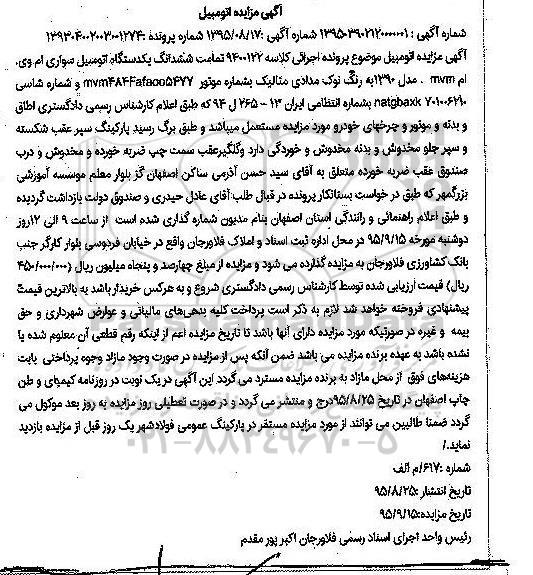 آگهی مزایده اتومبیل
شماره آگهی : ۱۳۹۵۰۳۹۰۲۱۲۰۰۰۰۰۱ شماره آگهی :۱۳۹۵/۰۸/۱۷ شماره پرونده :۱۳۹۳۰۴۰۰۲۰۰۳۰۰۱۲۷۴
آگهی مزایده اتومبیل موضوع پرونده اجرائی کلاسه ۹۴۰۰۱۲۲ تمامت ششدانگ یکدستگاه اتومبیل سواری ام وی.
ام mvm . مدل ۱۳۹۰به رنگ نوک مدادی متالیک بشماره موتور mvm484Fafa005477 و شماره شاسی
natgbaxk ۷۰۱۰۰۶۲۱۰ بشماره انتظامی ایران ۱۳ – ۲۶۵ ل ۹۴ که طبق اعلام کارشناس رسمی دادگستری اطاق
و بدنه و موتور و چرخهای خودرو مورد مزایده مستعمل میباشد و طبق برگ رسید پارکینگ سپر عقب شکسته
و سپر جلو مخدوش و بدنه مخدوش و خوردگی دارد وگلگیرعقب سمت چپ ضربه خورده و مخدوش و درب
صندوق عقب ضربه خورده متعلق به آقای سید حسن آذرمی ساکن اصفهان گز بلوار معلم موسسه آموزشی
بزرگمهر که طبق در خواست بستانکار پرونده در قبال طلب آقای عادل حیدری و صندوق دولت بازداشت گردیده
و طبق اعلام راهنمائی و رانندگی استان اصفهان بنام مدیون شماره گذاری شده است از ساعت ۹ الی ۱۲روز
دوشنبه مورخه ۹۵/۹/۱۵ در محل اداره ثبت اسناد و املاک فلاورجان واقع در خیابان فردوسی بلوار کارگر جنب
بانک کشاورزی فلاورجان به مزایده گذارده می شود و مزایده از مبلغ چهارصد و پنجاه میلیون ریال (۴۵۰/۰۰۰/۰۰۰
ریال) قیمت ارزیابی شده توسط کارشناس رسمی دادگستری شروع و به هرکس خریدار باشد به بالاترین قیمت
پیشنهادی فروخته خواهد شد لازم به ذکر است پرداخت کلیه بدهی‌های مالیاتی و عوارض شهرداری و حق
بیمه و غیره در صورتیکه مورد مزایده دارای آنها باشد تا تاریخ مزایده اعم از اینکه رقم قطعی آن معلوم شده یا
نشده باشد به عهده برنده مزایده می باشد ضمن آنکه پس از مزایده در صورت وجود مازاد وجوه پرداختی بابت
هزینه‌های فوق از محل مازاد به برنده مزایده مسترد می گردد این آگهی در یک نوبت در روزنامه کیمیای و طن
چاپ اصفهان در تاریخ ۹۵/۸/۲۵درج و منتشر می گردد و در صورت تعطیلی روز مزایده به روز بعد موکول می
گردد ضمنا طالبین می توانند از مورد مزایده مستقر در پارکینگ عمومی فولادشهر یک روز قبل از مزایده بازدید
نماید./
شماره :۶۱۷/م الف
تاریخ انتشار :۹۵/۸/۲۵
تاریخ مزایده:۹۵/۹/۱۵
رئیس واحد اجرای اسناد رسمی فلاورجان اکبر پور مقدم
۰۲۱-۸۸۳۴۹۶۷۰-۵